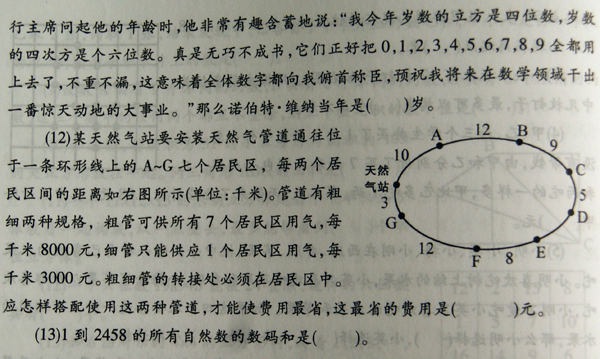 行主席问起他的年龄时,他非常有趣含蓄地说:“我今年岁数的立方是四位数,岁数
的四次方是个六位数。真是无巧不成书,它们正好把 0,1,2,3,4,5,6,7,8,9 全都用
上去了,不重不漏,这意味着全体数字都向我俯首称臣,预祝我将来在数学领域干出
一番惊天动地的大事业。”那么诺伯特·维纳当年是( )岁。
(12)某天然气站要安装天然气管道通往位
于一条环形线上的 A~G 七个居民区，每两个居
民区间的距离如右图所示(单位:千米)。管道有粗
细两种规格，粗管可供所有 7 个居民区用气,每
千米 8000 元,细管只能供应 1 个居民区用气,每
千米 3000 元。粗细管的转接处必须在居民区中。
应怎样搭配使用这两种管道,才能使费用最省,这最省的费用是( )元。
(13)1 到 2458 的所有自然数的数码和是( )。
A
12
B
9
C
5
D
E
8
F
12
G
3
天然
气站
10